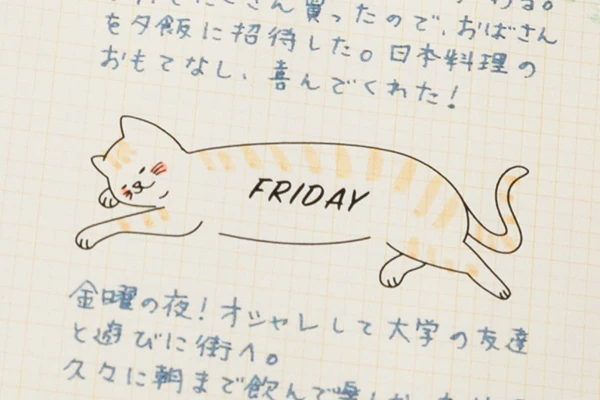 買ったので、おばさん
を夕飯に招待した。日本料理の
おもてなし、喜んでくれた！
FRIDAY
金曜の夜！オシャレして大学の友達
と遊びに街へ。
久々に朝まで飲んで